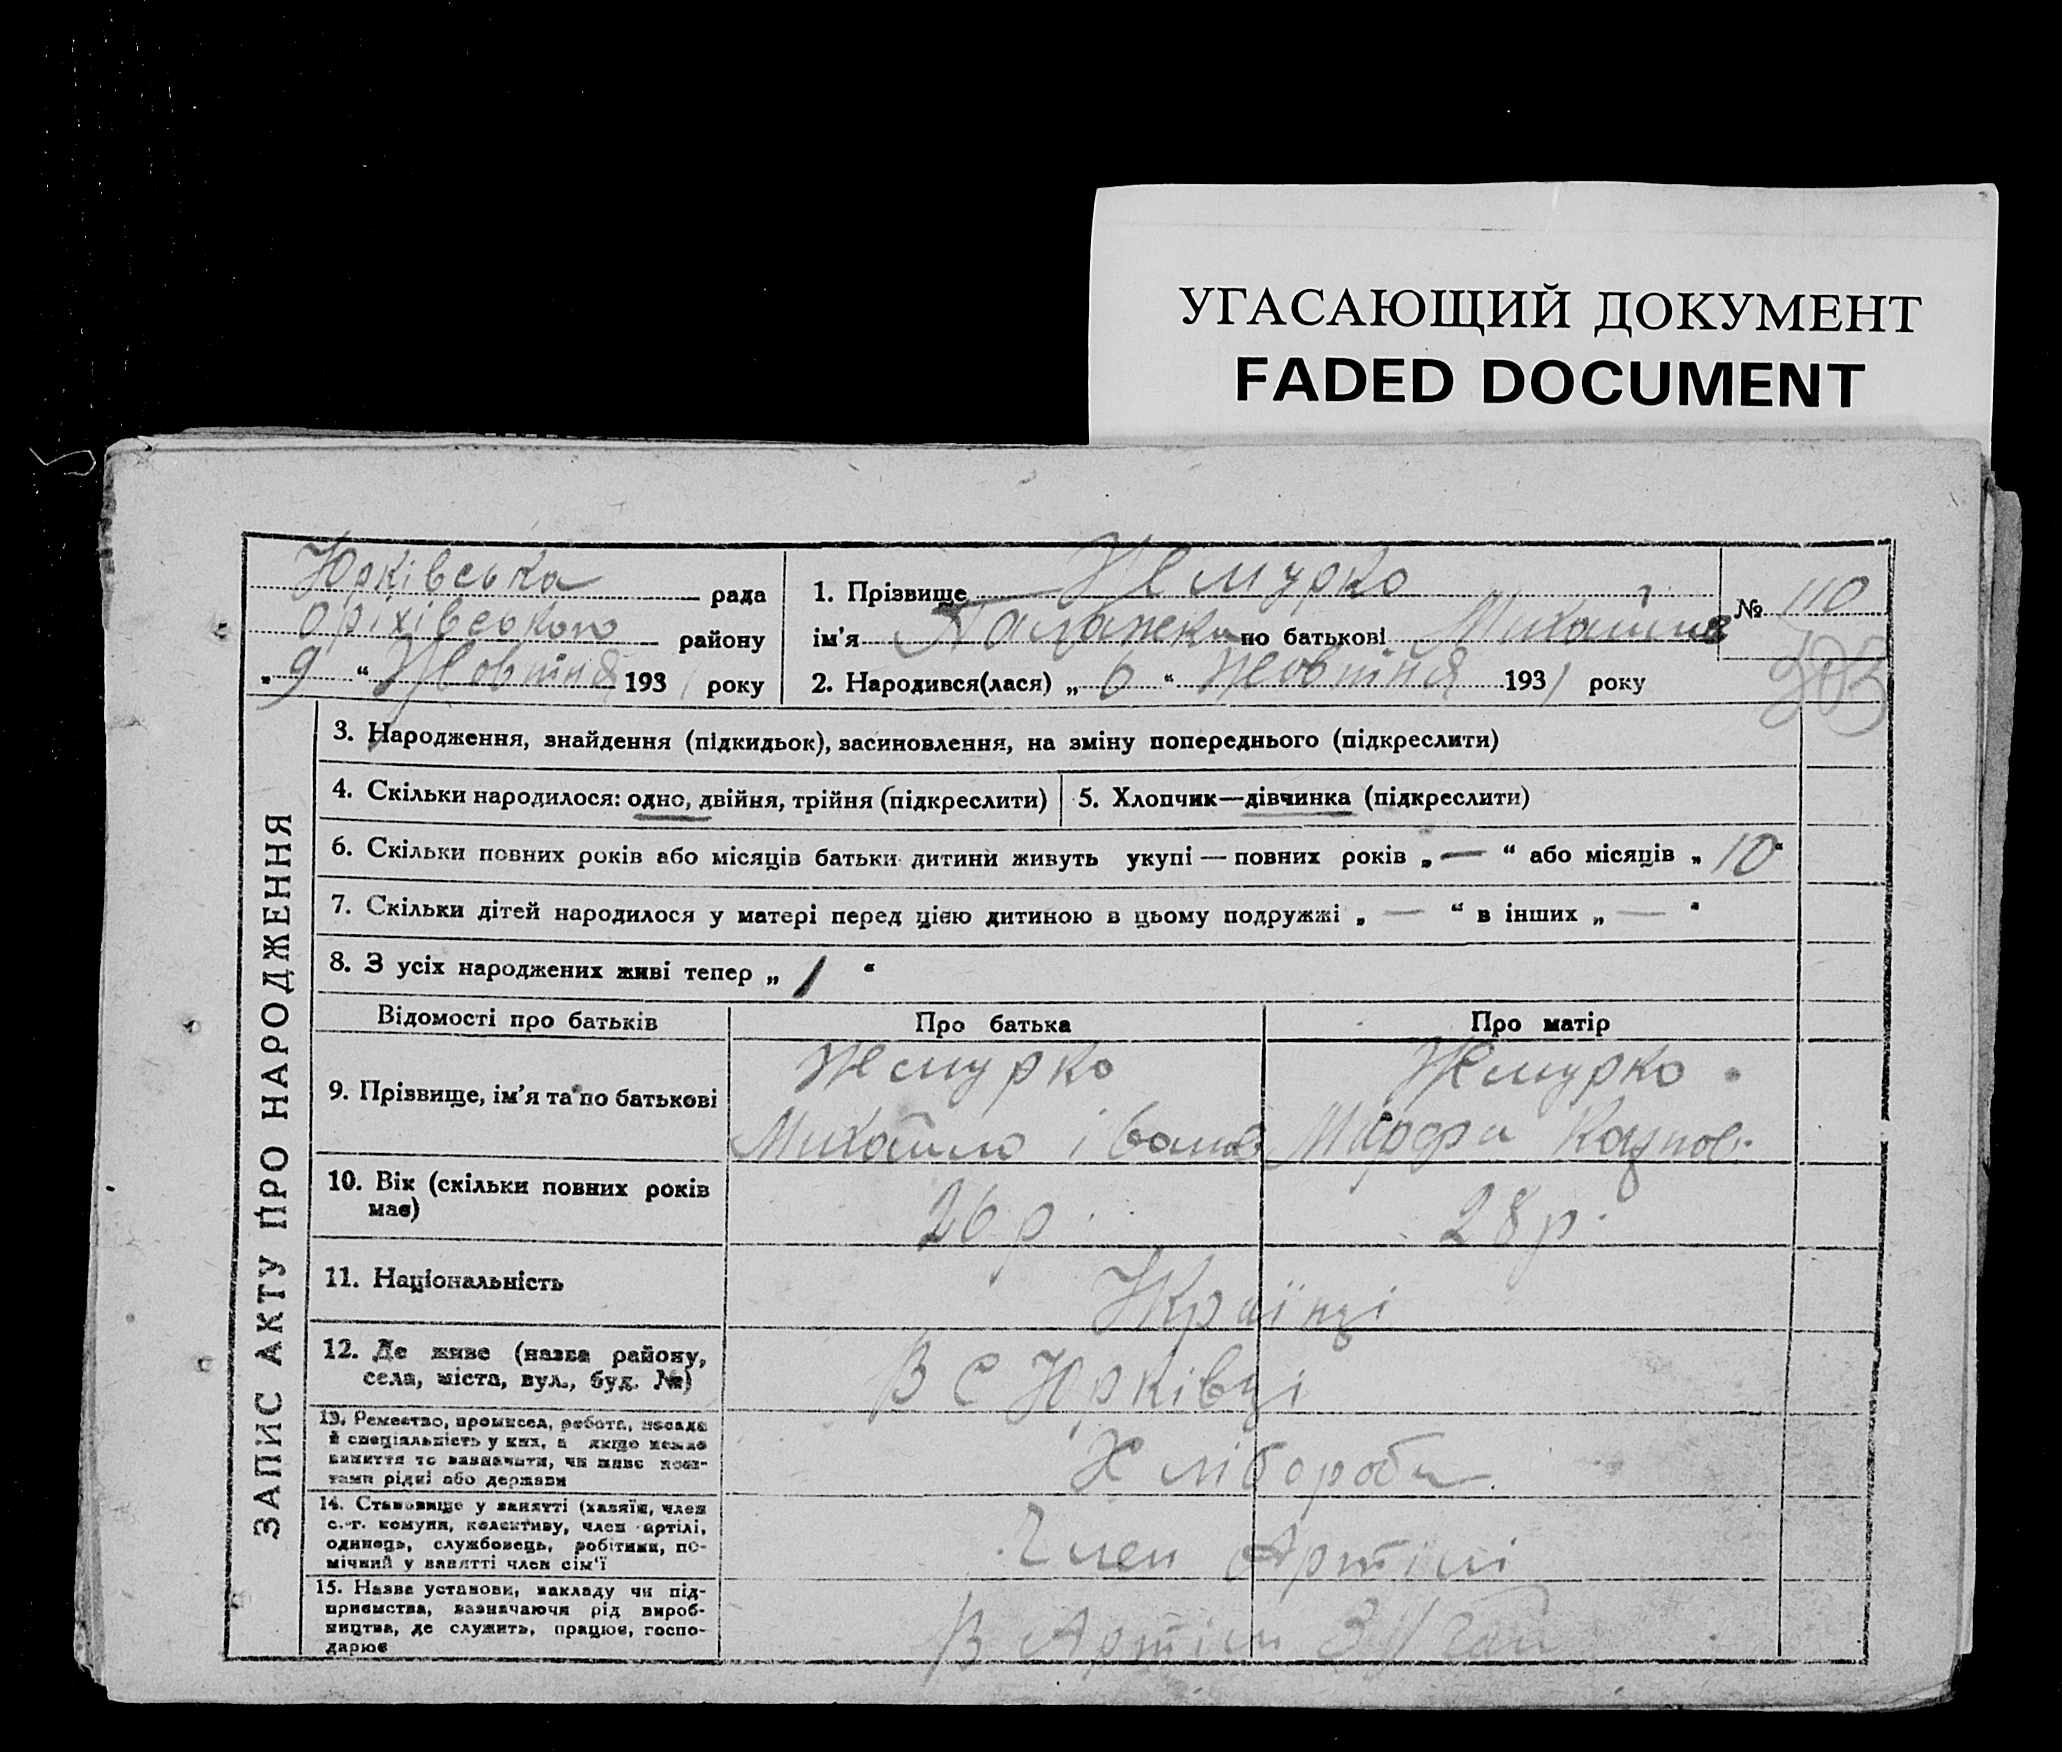 УГАСАЮЩИЙ ДОКУМЕНТ
FADED DOCUMENT
Юрківська рада
Оріхівського району
„ 9 “ Жовтня 1931 року
1. Прізвище Жмурко
ім'я Палажка по батькові Михайлів
2. Народився(лася) „ 6 “ Жовтня 1931 року
№ 110
ЗАПИС АКТУ ПРО НАРОДЖЕННЯ
3. Народження, знайдення (підкидьок), засиновлення, на зміну попереднього (підкреслити)
4. Скільки народилося: одно, двійня, трійня (підкреслити)
5. Хлопчик—дівчинка (підкреслити)
6. Скільки повних років або місяців батьки дитини живуть укупі — повних років „ — “ або місяців „ 10 “
7. Скільки дітей народилося у матері перед цією дитиною в цьому подружжі „ — “ в інших „ — “
8. З усіх народжених живі тепер „ 1 “
Відомості про батьків
Про батька
Про матір
9. Прізвище, ім'я та по батькові
Жмурко
Михайло Іванов
Жмурко
Марфа
10. Вік (скільки повних років
має)
26 р.
28 р.
11. Національність
Українці
12. Де живе (назва району,
села, міста, вул., буд. №)
В С Юрківці
13. Ремество, промисел, робота, посада
й спеціальність у них, а якщо немає
заняття то зазначити, чи живе кош-
тами рідні або держави
Хлібороби
14. Становище у занятті (хазяїн, член
с.-г. комуни, колективу, член артілі,
одинець, службовець, робітник, по-
мічний у занятті член сім'ї
Член Артілі
15. Назва установи, закладу чи під-
приємства, зазначаючи рід вироб-
ництва, де служить, працює, госпо-
дарює
В Артіли